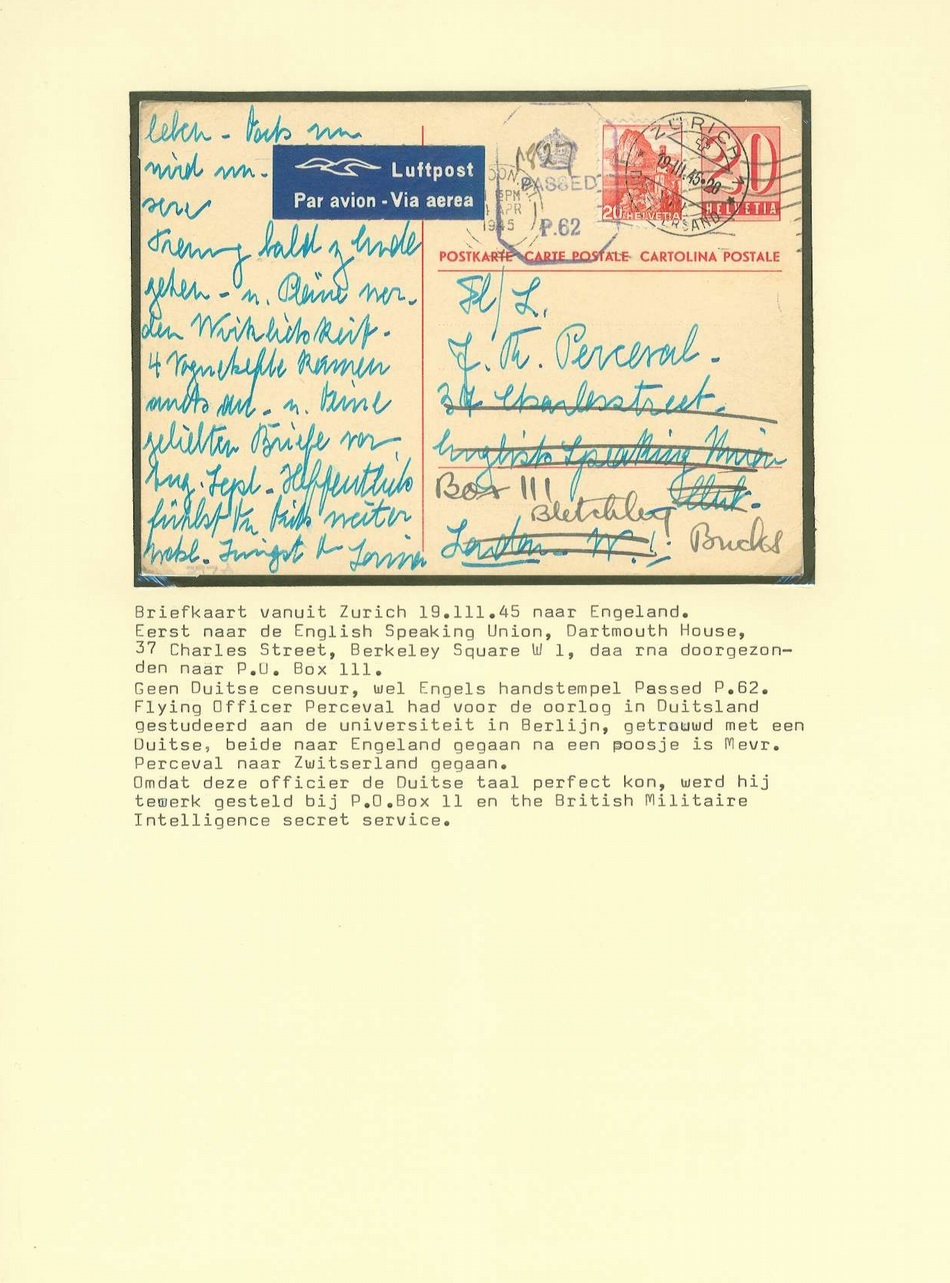 leben -
wird un-
sere
Trennung bald z. Ende
gehen - u. Pläne wer-
den Wirklichkeit -
4 Voguehefte kamen
auch an - u. Deine
geliebten Briefe von
Aug. Sept - Hoffentlich
fühlst Du Dich weiter
wohl - Innigst
Luftpost
Par avion - Via aerea
1827
PASSED
P.62
PM
APR
1945
ZÜRICH
19.III.45-20
VERSAND
20 HELVETIA
20
HELVETIA
POSTKARTE CARTE POSTALE CARTOLINA POSTALE
Fl/L.
J. Th. Perceval -
37 Charlesstreet -
English Speaking Union
Box 111
Bletchley
London - W. 1.
Bucks
Briefkaart vanuit Zurich 19.111.45 naar Engeland.
Eerst naar de English Speaking Union, Dartmouth House,
37 Charles Street, Berkeley Square W 1, daa rna doorgezon-
den naar P.O. Box 111.
Geen Duitse censuur, wel Engels handstempel Passed P.62.
Flying Officer Perceval had voor de oorlog in Duitsland
gestudeerd aan de universiteit in Berlijn, getrouwd met een
Duitse, beide naar Engeland gegaan na een poosje is Mevr.
Perceval naar Zwitserland gegaan.
Omdat deze officier de Duitse taal perfect kon, werd hij
tewerk gesteld bij P.O.Box 11 en the British Militaire
Intelligence secret service.